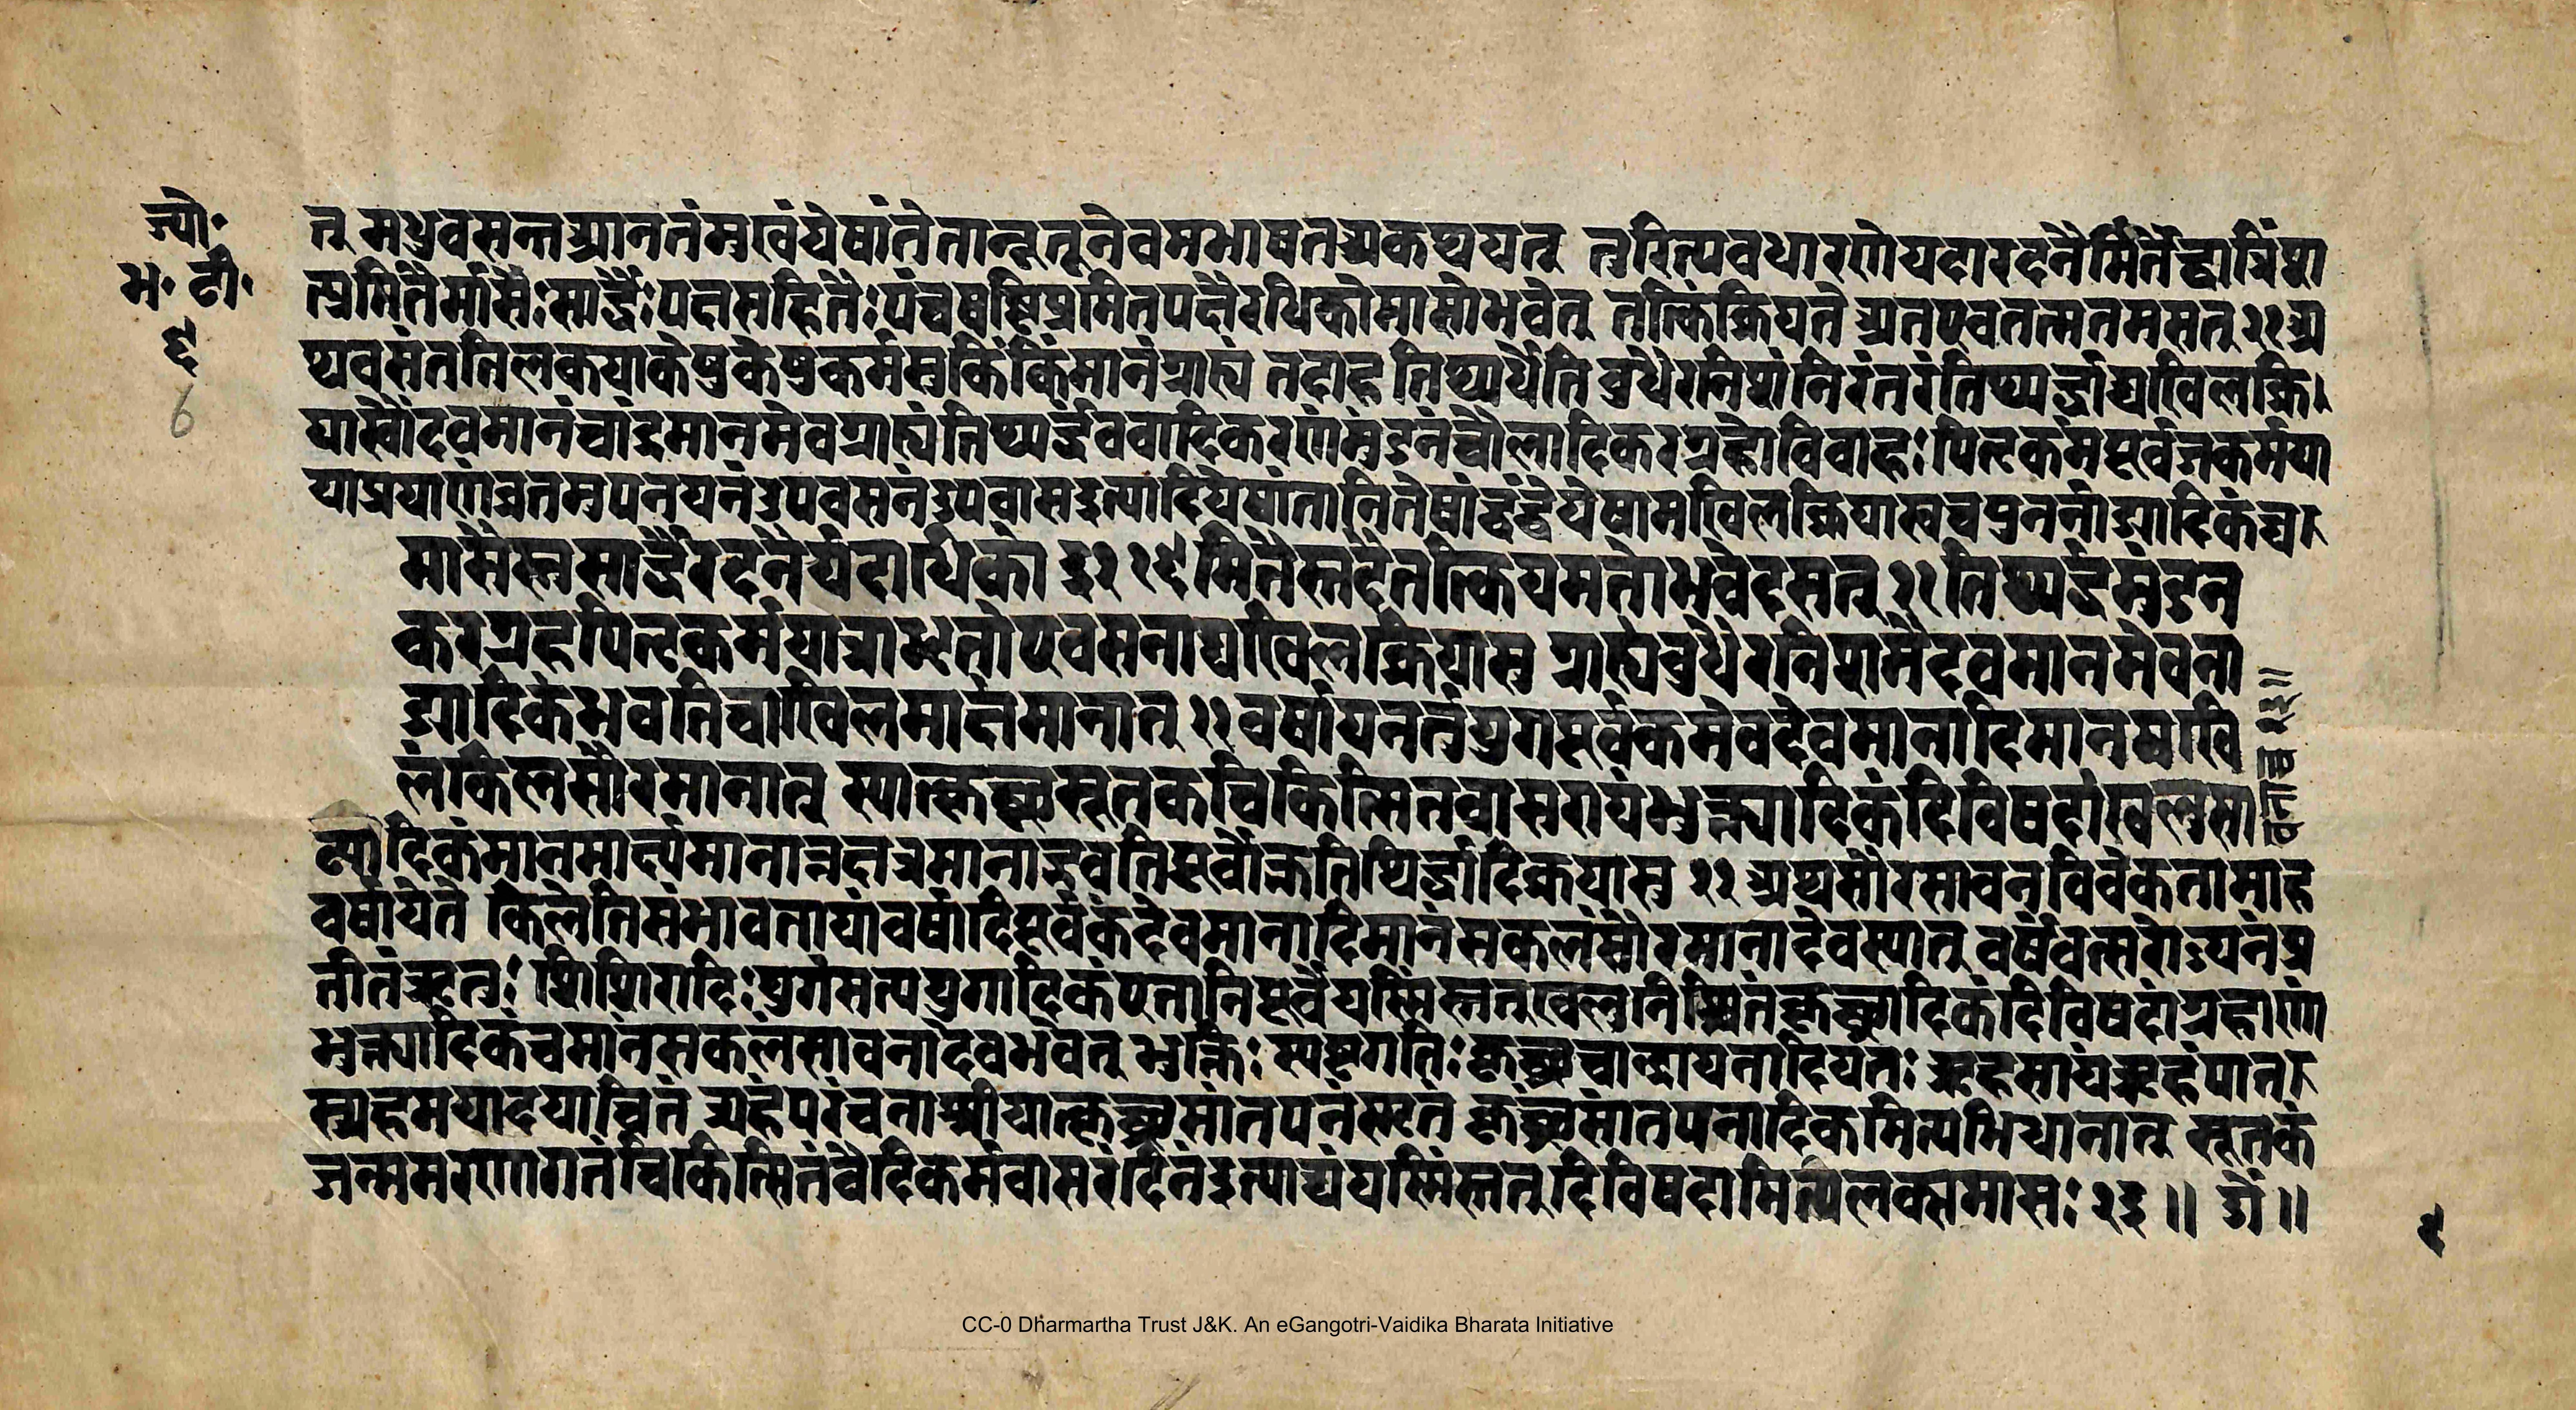 ज्यो॰
भ॰ टी॰
६
6
त् मधुवसन्तआननंमुखंयेषांतेतान्नृतूनेवमभाषतअकथयत् तुरित्यवधारणेयदारदनैर्मितैर्द्वात्रिंश
त्प्रमितैर्मासैःसार्द्धैःपक्षसहितैःपंचषष्टिप्रमितपक्षैरधिकोमासोभवेत् तत्किंक्रियते अतएवतन्मतमसत् २१ अ
थवसंततिलकयाकेषुकेषुकर्मसुकिंकिंमानंग्राह्यं तदाह तिथ्यर्धेति बुधैरनिशंनिरंतरंतिथ्यर्द्धाद्यखिलक्रि
यास्वैंदवमानंचांद्रमानमेवग्राह्यंतिथ्यर्द्धंबवादिकरणंमुंडनंचौलादिकरग्रहोविवाहःपितृकर्मपूर्वजकर्मया
याप्रयाणंव्रतमुपनयनंउपवसनंउपवासइत्यादियेषांतानितेषांद्वंद्वेयेषामखिलक्रियास्वचपुनर्नाड्यादिकंच
मासैस्तुसार्द्धैरदनैर्यदाधिको ३२ १६ मितैस्तदैतत्कियमतोभवेदसत् २१ तिथ्यर्द्धमुंडन
करग्रहपितृकर्मयात्राव्रतोपवसनाद्यखिलक्रियासु ग्राह्यंबुधैरनिशमैंदवमानमेवना
ड्यादिकंभवतिचाखिलमार्क्षमानात् २२ वर्षायनर्तुयुगपूर्वकमेवदेवमानादिमानमखि
लंकिलसौरमानात् स्यात्कृच्छ्रसूतकचिकित्सितवासराद्यंभुक्त्यादिकंदिविषदांखलुसा
वनाच्च २३॥
ट्यादिकंमानमार्क्ष्यमानान्नक्षत्रमानाद्भवतिपूर्वोक्ततिथ्यर्द्धादिक्रियासु २२ अथसौरसावनविवेकतामाह
वर्षायेते किलेतिसंभावनायांवर्षादिपूर्वकंदेवमानादिमानंसकलंसौरमानादेवस्यात् वर्षंवत्सरोऽयनंप्र
तीतंऋतुः शिशिरादिःयुगंसत्ययुगादिकंएतानिपूर्वेयस्मिंस्तत्खलुनिश्चितंकृच्छ्रादिकंदिविषदांग्रहाणां
भुक्त्यादिकंचमानंसकलंसावनादेवभवेत् भुक्तिः स्पष्टगतिःकृच्छ्रचान्द्रायनादियतः त्र्यहसायंत्र्यहंपात
स्त्र्यहमद्यादयाचितं त्र्यहंपरंचनाश्नीयात्कृच्छ्रसांतपनंस्मृतं कृच्छ्रसांतपनादिकमित्यभिधानात् सूतकं
जन्ममरणागतंचिकित्सितंवैदिकर्मवासरंदिनंइत्याद्यंयस्मिंस्तत् दिविषदामित्यलुक्समासः २३ ॥ ॥
CC-0 Dharmartha Trust J&K. An eGangotri-Vaidika Bharata Initiative